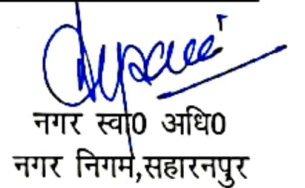 नगर स्वा0 अधि0
नगर निगम,सहारनपुर